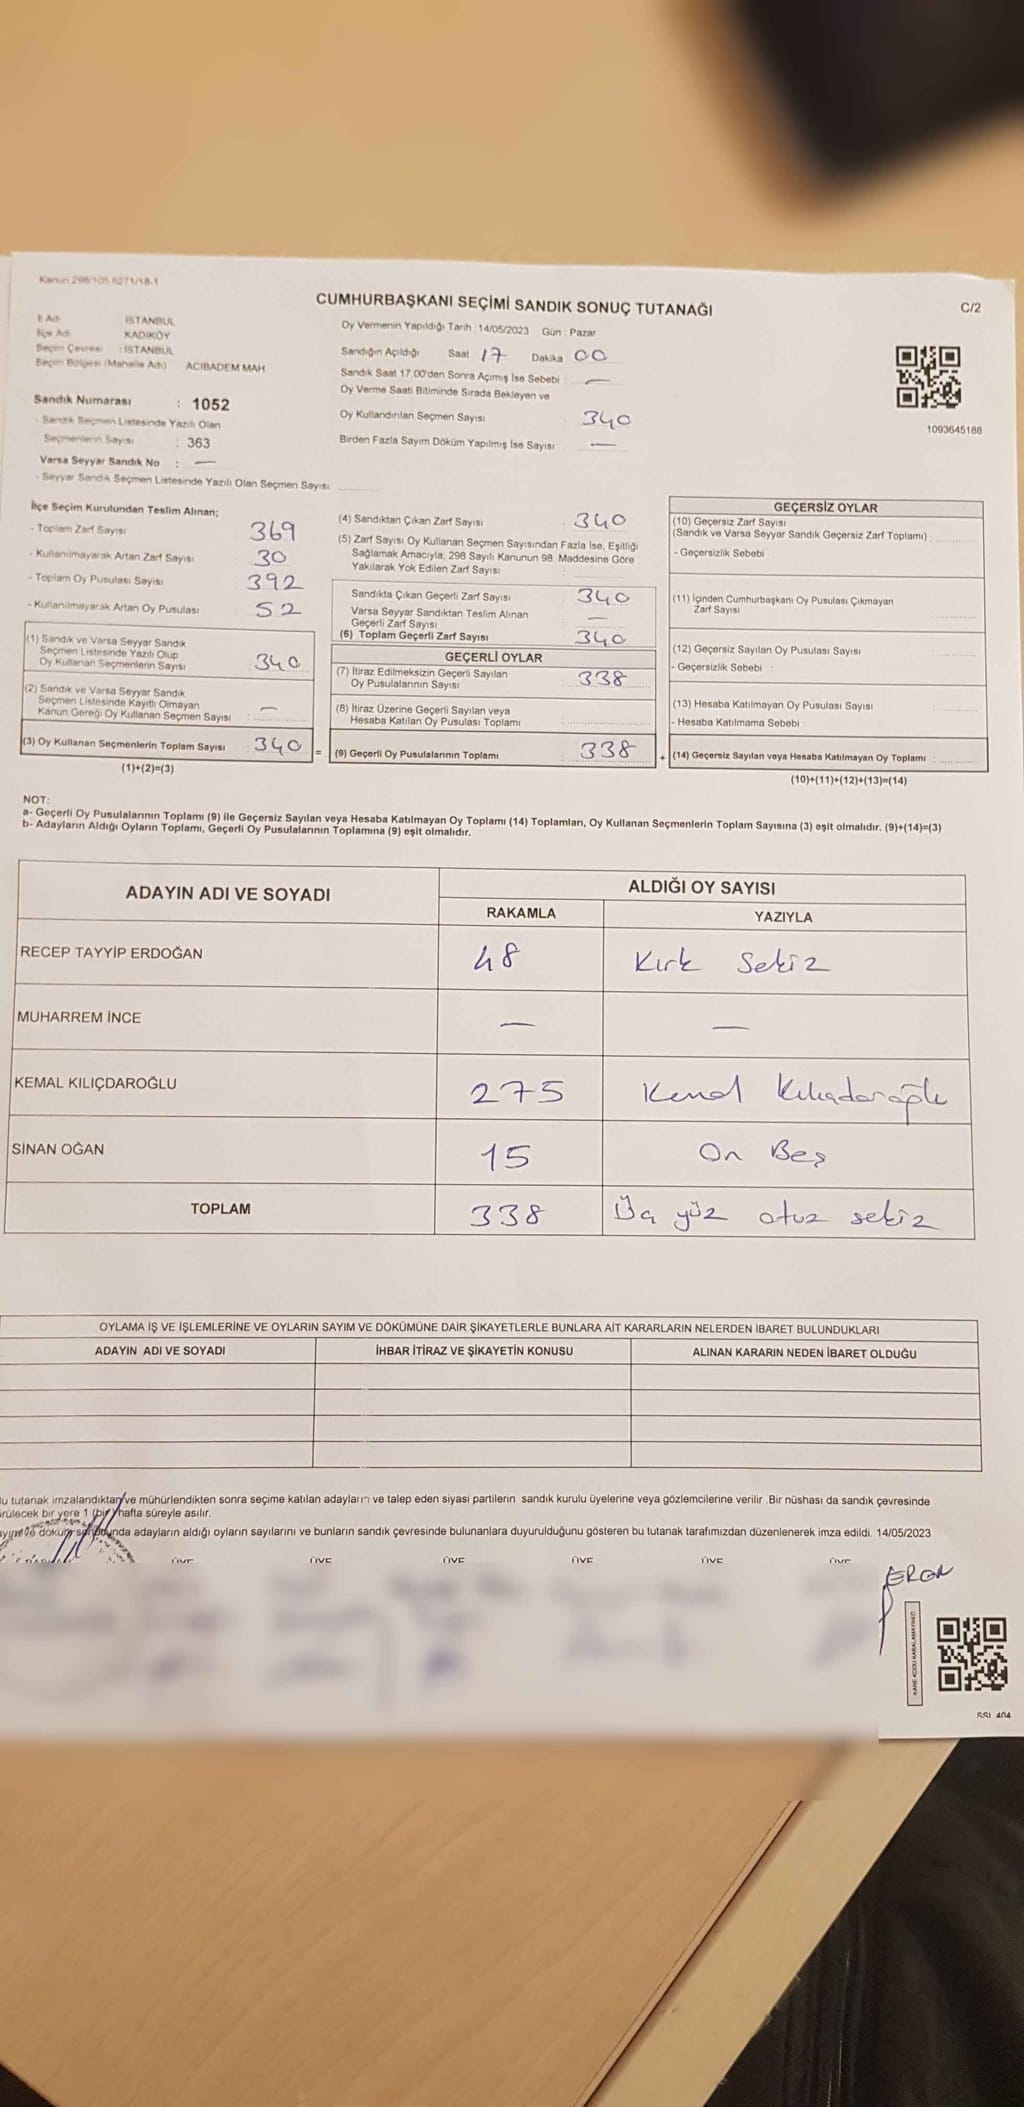 Kanun 298/105 6271/18-1
CUMHURBAŞKANI SEÇİMİ SANDIK SONUÇ TUTANAĞI
C/2
İl Adı İSTANBUL
İlçe Adı KADIKÖY
Seçim Çevresi : İSTANBUL
Seçim Bölgesi (Mahalle Adı) ACIBADEM MAH
Sandık Numarası : 1052
- Sandık Seçmen Listesinde Yazılı Olan
Seçmenlerin Sayısı : 363
Varsa Seyyar Sandık No : —
- Seyyar Sandık Seçmen Listesinde Yazılı Olan Seçmen Sayısı
Oy Vermenin Yapıldığı Tarih : 14/05/2023 Gün : Pazar
Sandığın Açıldığı Saat 17 Dakika 00
Sandık Saat 17.00'den Sonra Açımış İse Sebebi : —
Oy Verme Saati Bitiminde Sırada Bekleyen ve
Oy Kullandırılan Seçmen Sayısı : 340
Birden Fazla Sayım Döküm Yapılmış İse Sayısı : —
1093645188
İlçe Seçim Kurulundan Teslim Alınan;
- Toplam Zarf Sayısı 369
- Kullanılmayarak Artan Zarf Sayısı 30
- Toplam Oy Pusulası Sayısı 392
- Kullanılmayarak Artan Oy Pusulası 52
(1) Sandık ve Varsa Seyyar Sandık
Seçmen Listesinde Yazılı Olup
Oy Kullanan Seçmenlerin Sayısı 340
(2) Sandık ve Varsa Seyyar Sandık
Seçmen Listesinde Kayıtlı Olmayan
Kanun Gereği Oy Kullanan Seçmen Sayısı : —
(3) Oy Kullanan Seçmenlerin Toplam Sayısı : 340 =
(1)+(2)=(3)
(4) Sandıktan Çıkan Zarf Sayısı : 340
(5) Zarf Sayısı Oy Kullanan Seçmen Sayısından Fazla İse, Eşitliği
Sağlamak Amacıyla, 298 Sayılı Kanunun 98. Maddesine Göre
Yakılarak Yok Edilen Zarf Sayısı
Sandıkta Çıkan Geçerli Zarf Sayısı : 340
Varsa Seyyar Sandıktan Teslim Alınan
Geçerli Zarf Sayısı —
(6) Toplam Geçerli Zarf Sayısı 340
GEÇERLİ OYLAR
(7) İtiraz Edilmeksizin Geçerli Sayılan
Oy Pusulalarının Sayısı : 338
(8) İtiraz Üzerine Geçerli Sayılan veya
Hesaba Katılan Oy Pusulası Toplamı
(9) Geçerli Oy Pusulalarının Toplamı : 338 +
GEÇERSİZ OYLAR
(10) Geçersiz Zarf Sayısı
(Sandık ve Varsa Seyyar Sandık Geçersiz Zarf Toplamı) :
- Geçersizlik Sebebi
(11) İçinden Cumhurbaşkanı Oy Pusulası Çıkmayan
Zarf Sayısı
(12) Geçersiz Sayılan Oy Pusulası Sayısı
- Geçersizlik Sebebi :
(13) Hesaba Katılmayan Oy Pusulası Sayısı
- Hesaba Katılmama Sebebi
(14) Geçersiz Sayılan veya Hesaba Katılmayan Oy Toplamı :
(10)+(11)+(12)+(13)=(14)
NOT:
a- Geçerli Oy Pusulalarının Toplamı (9) ile Geçersiz Sayılan veya Hesaba Katılmayan Oy Toplamı (14) Toplamları, Oy Kullanan Seçmenlerin Toplam Sayısına (3) eşit olmalıdır. (9)+(14)=(3)
b- Adayların Aldığı Oyların Toplamı, Geçerli Oy Pusulalarının Toplamına (9) eşit olmalıdır.
ADAYIN ADI VE SOYADI ALDIĞI OY SAYISI
RAKAMLA YAZIYLA
RECEP TAYYİP ERDOĞAN 48 Kırk Sekiz
MUHARREM İNCE — —
KEMAL KILIÇDAROĞLU 275 Kemal Kılıçdaroğlu
SİNAN OĞAN 15 On Beş
TOPLAM 338 Üç yüz otuz sekiz
OYLAMA İŞ VE İŞLEMLERİNE VE OYLARIN SAYIM VE DÖKÜMÜNE DAİR ŞİKAYETLERLE BUNLARA AİT KARARLARIN NELERDEN İBARET BULUNDUKLARI
ADAYIN ADI VE SOYADI İHBAR İTİRAZ VE ŞİKAYETİN KONUSU ALINAN KARARIN NEDEN İBARET OLDUĞU
u tutanak imzalandıktan ve mühürlendikten sonra seçime katılan adayların ve talep eden siyasi partilerin sandık kurulu üyelerine veya gözlemcilerine verilir. Bir nüshası da sandık çevresinde
rülecek bir yere 1 (bir) hafta süreyle asılır.
ayım ve döküm sonunda adayların aldığı oyların sayılarını ve bunların sandık çevresinde bulunanlara duyurulduğunu gösteren bu tutanak tarafımızdan düzenlenerek imza edildi. 14/05/2023
ÜYE ÜYE ÜYE ÜYE ÜYE ÜYE
EREN
KARE KODU KARALAMAYINIZ!
SSI 404